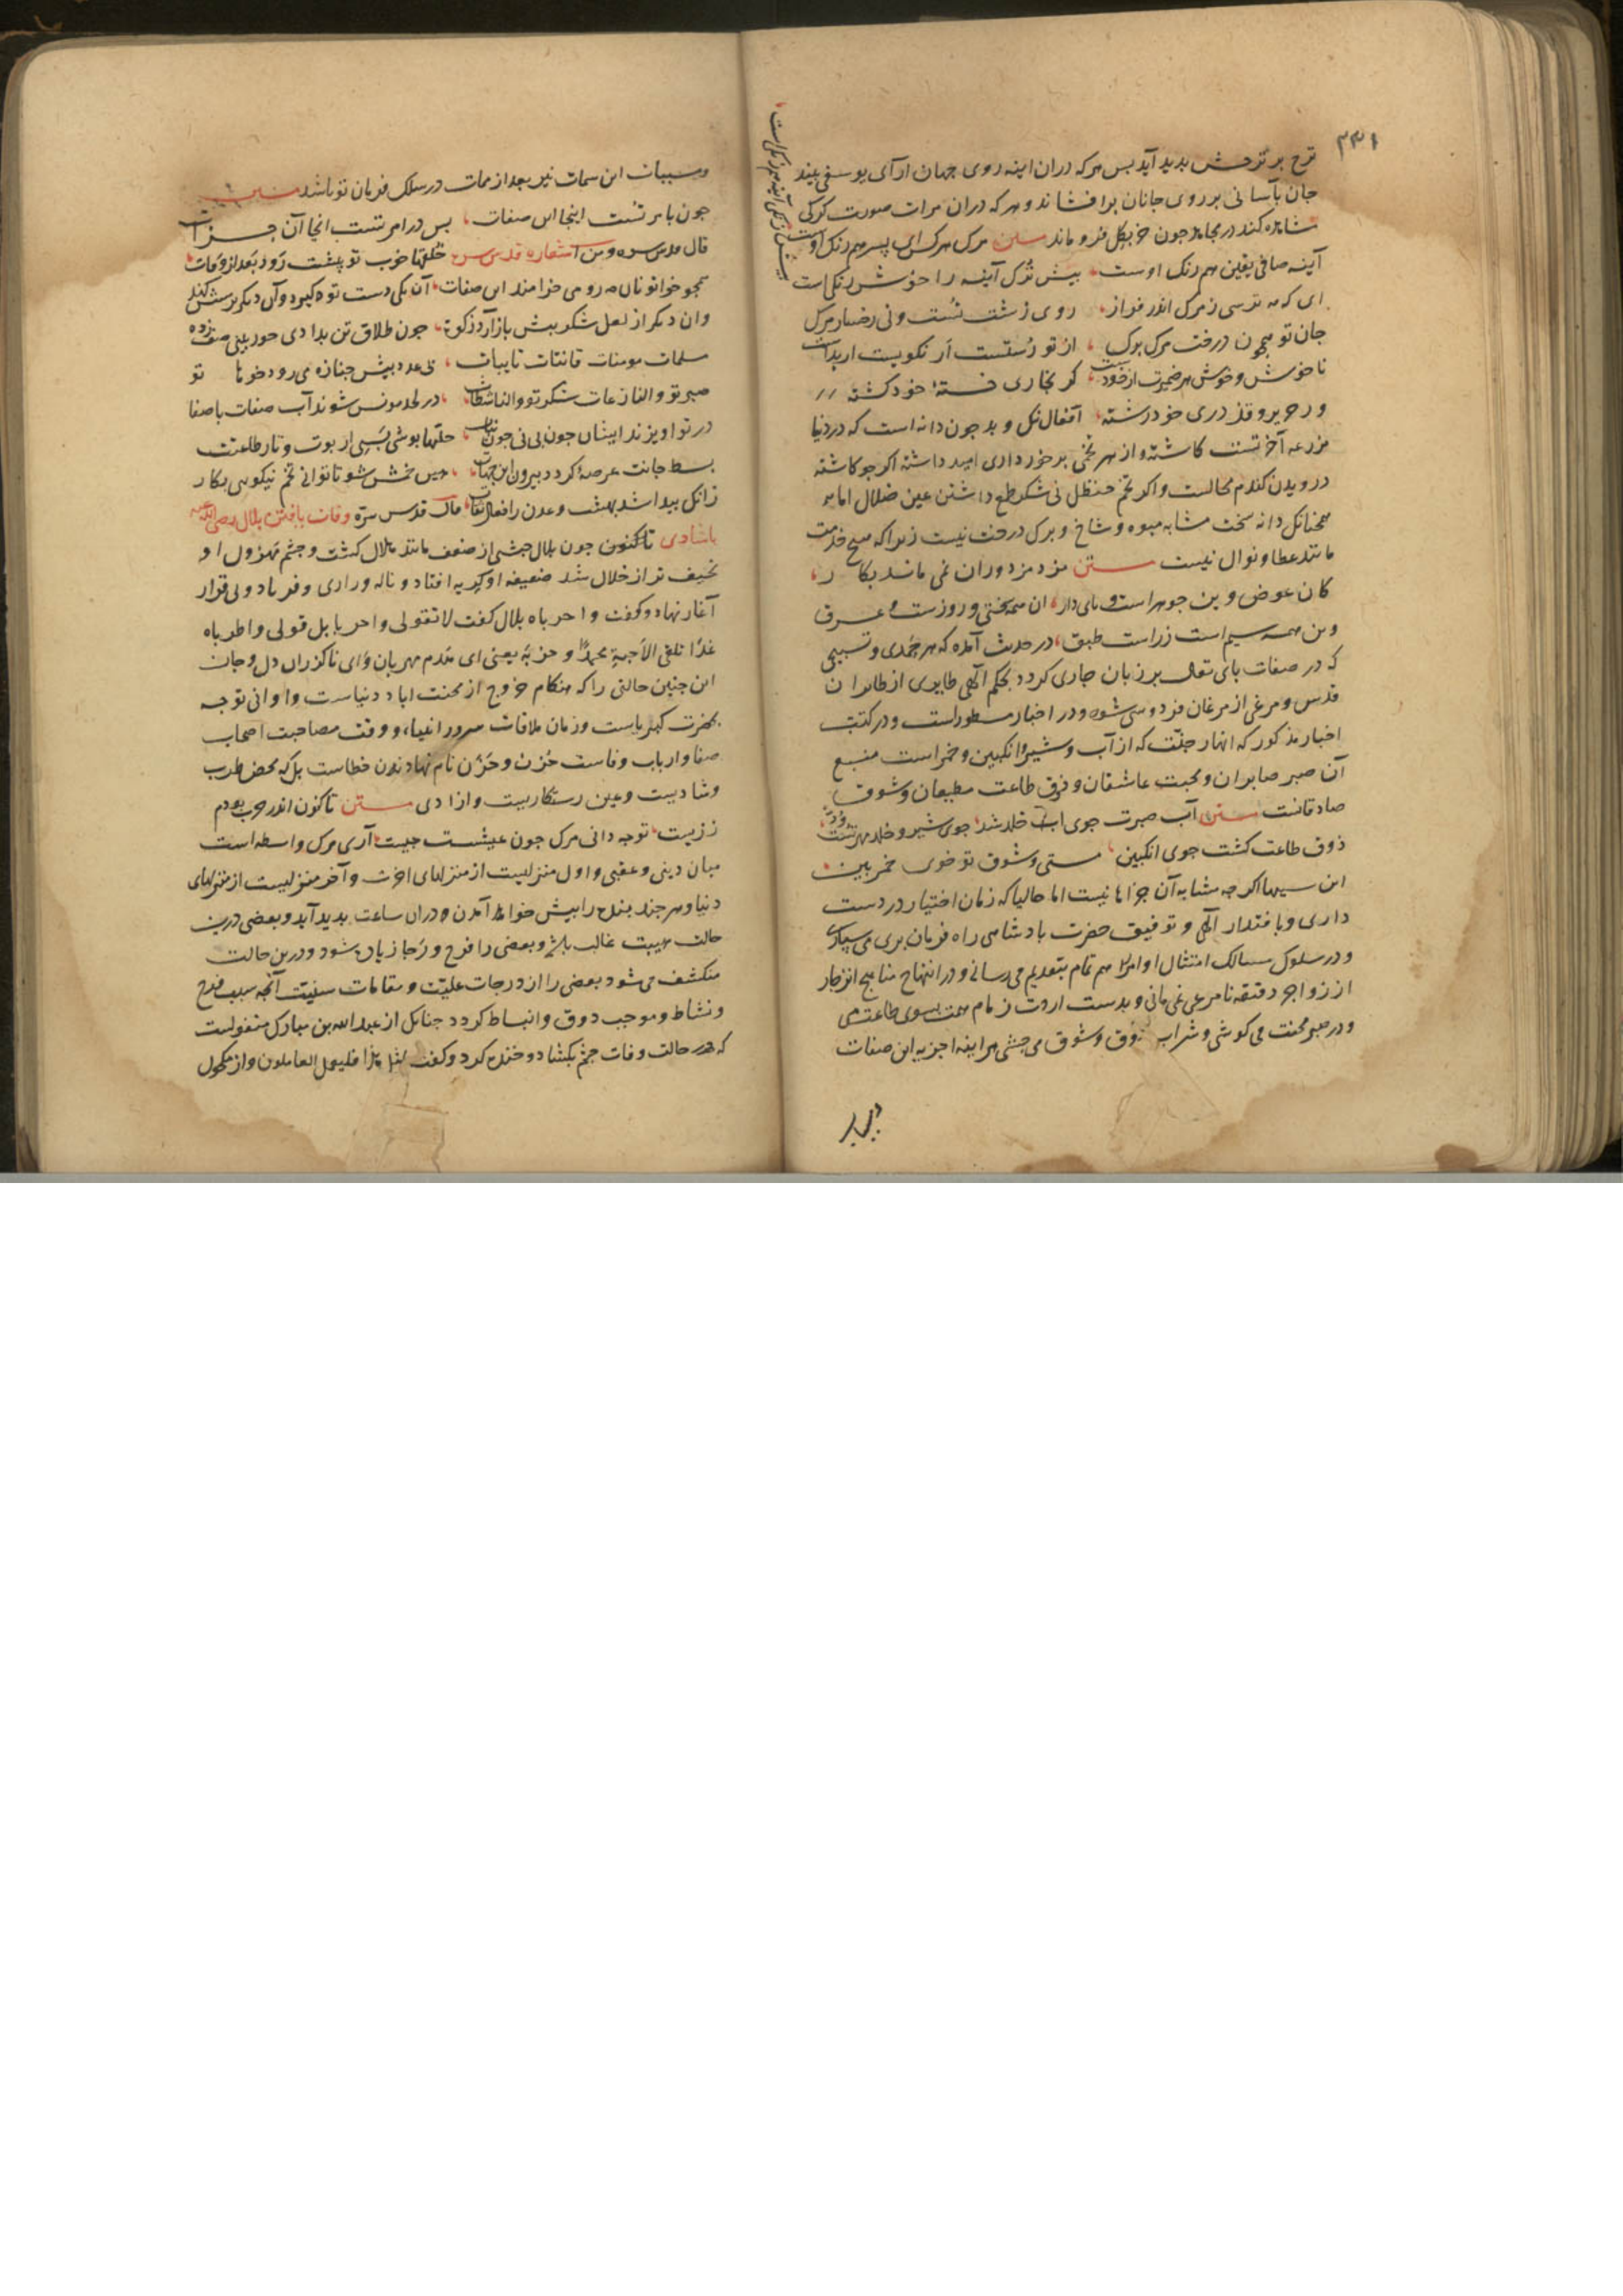 ۲۳۱
ترح بر ترحش بدید آید بس هرکه دران اینه روی جهان ارآی یوسفی بیند
جان بآسانی بر روی جانان برافشاند و هرکه دران مرات صورت کرکی
مشاهده کند در مجاهد جون خر بکل فرو ماند متن مرک هرکس ای پسر همرنک اوست
آینه صافی یقین همرنک اوست بیش ترک آینه را خوش رنکیست
بیش زنکی آینه هم زنکیست
ای که می ترسی زمرک اندر فرار روی زشت تست ونی رخسار مرک
جان تو همچون درخت مرک برک از تو رستست ار نکویست ار بدست
ناخوش و خوش هر ضمیرت از خودست کر بخاری خسته خود کشته
ور حریر و قز دری خود رشته افعال نیک و بد جون دانه است که در دنیا
مزرعه آخرتست کاشته و از هر تخمی برخورداری امید داشته اکر جو کاشته
درویدن کندم محالست و اکر تخم حنظل نی شکر طمع داشتن عین ضلال اما
همچنانکه دانه سخت مشابه میوه و شاخ و برک درخت نیست زیراکه هیچ خدمت
مانند عطا و نوال نیست متن مزد مزدوران نمی ماند بکار
کان عرض وین جوهر است و پای دار ان همه سختی و روزست و عرق
وین همه سیم است زر است طبق در حدیث آمده که هر حمدی و تسبیحی
که در صفات باری تعالی بر زبان جاری کردد بحکم آلهی طایری از طایران
قدس و مرغی از مرغان فردوسی شود و در اخبار مسطور است و در کتب
اخبار مذکور که انهار جنت که از آب و شیر و انکبین و خمر است منبع
آن صبر صابران و محبت عاشقان و ذوق طاعت مطیعان و شوق
صادقانست متن آب صبرت جوی آب خلد شد جوی شیر و خلد مهر تست و ود
ذوق طاعت کشت جوی انکبین مستی و شوق تو جوی خمر بین
این سیبها اکر جه مشابه آن جزاها نیست اما حالیا که زمان اختیار در دست
داری و باقتدار آلهی و توفیق حضرت بادشاهی راه فرمان بری می سپاری
و در سلوک مسالک امتثال اوامر اهتمام تمام بتقدیم می رسانی و در انتهاج مناهج انزجار
از زواجر دقیقه نامرعی نمی مانی و بدست ارادت زمام همت بسوی طاعت می
و در صبر محنت می کوشی و شراب ذوق و شوق می جشی هر اینه اجزیه این صفات
ومسببات این سمات نیز بعد از ممات در سلک فرمان تو باشد متن
جون بامر تست اینجا این صفات بس در امر تست انجا آن جزات
قال قدس سره ومن اشعاره قدس سره خلقها خوب تو پیشت رود بعد از وفات
همجو خاتونان مه رو می خرامند این صفات آن یکی دست تو کیرد وآن دیکر پرسش کند
وان دیکر از لعل شکر بیش باز آرد زکوة جون طلاق تن بدادی حور بینی صف زده
مسلمات مومنات قانتات تایبات بی عدد بیش جنازه می رود خوها تو
صبر تو والنازعات شکر تو والناشطات در لحد مونس شوند آب صفات باصفا
در تو اویزند ایشان جون بی نی جون بنات حلتها بوشی بسی از بود و تار طاعتت
بسط جانت عرصه کردد بیرون این جهات هین خمش شو تا توانی تخم نیکویی بکار
زانک بیدا شد بهشت و عدن ز افعال ثقات قال قدس سره وفات یافتن بلال رضی الله عنه
باشادی تا کنون جون بلال حبشی از ضعف مانند هلال کشت و جشم مهزول او
نحیف تر از خلال شد ضعیفه او بکریه افتاد و ناله و زاری و فریاد و بی قرار
آغاز نهاد و کفت واحرباه بلال کفت لا تقولی واحربا بل قولی واطرباه
غدا نلقی الاحبة محمدا و حزبه یعنی ای همدم مهربان وای ناکزران دل و جان
این جنین حالتی را که هنکام خروج از محنت اباد دنیاست و اوانی توجه
بحضرت کبریاست و زمان ملاقات سرور انبیاء و وقت مصاحبت اصحاب
صفا و ارباب وفاست حزن و حزن نام نهادن خطاست بل که محض طرب
وشادیست و عین رستکاریست و ازادی متن تا کنون اندر حرب بودم
ززیست تو جه دانی مرک جون عیشست جیست آری مرک واسطه است
میان دینی و عقبی و اول منزلیست از منزلهای اخرت و آخر منزلیست از منزلهای
دنیا و هر جزد بنده را بیش خواهد آمدن و دران ساعت بدید آید و بعضی درین
حالت هیبت غالب باشد و بعضی را فرح و رجا زیاده شود و درین حالت
منکشف می شود بعضی را از درجات علیت و مقامات سنیت آنجه سبب فرح
و نشاط و موجب ذوق و انبساط کردد جنانک از عبد الله بن مبارک منقولست
که در حالت وفات جشم بکشاد و خنده کرد و کفت لمثل هذا فلیعمل العاملون و از مکحول